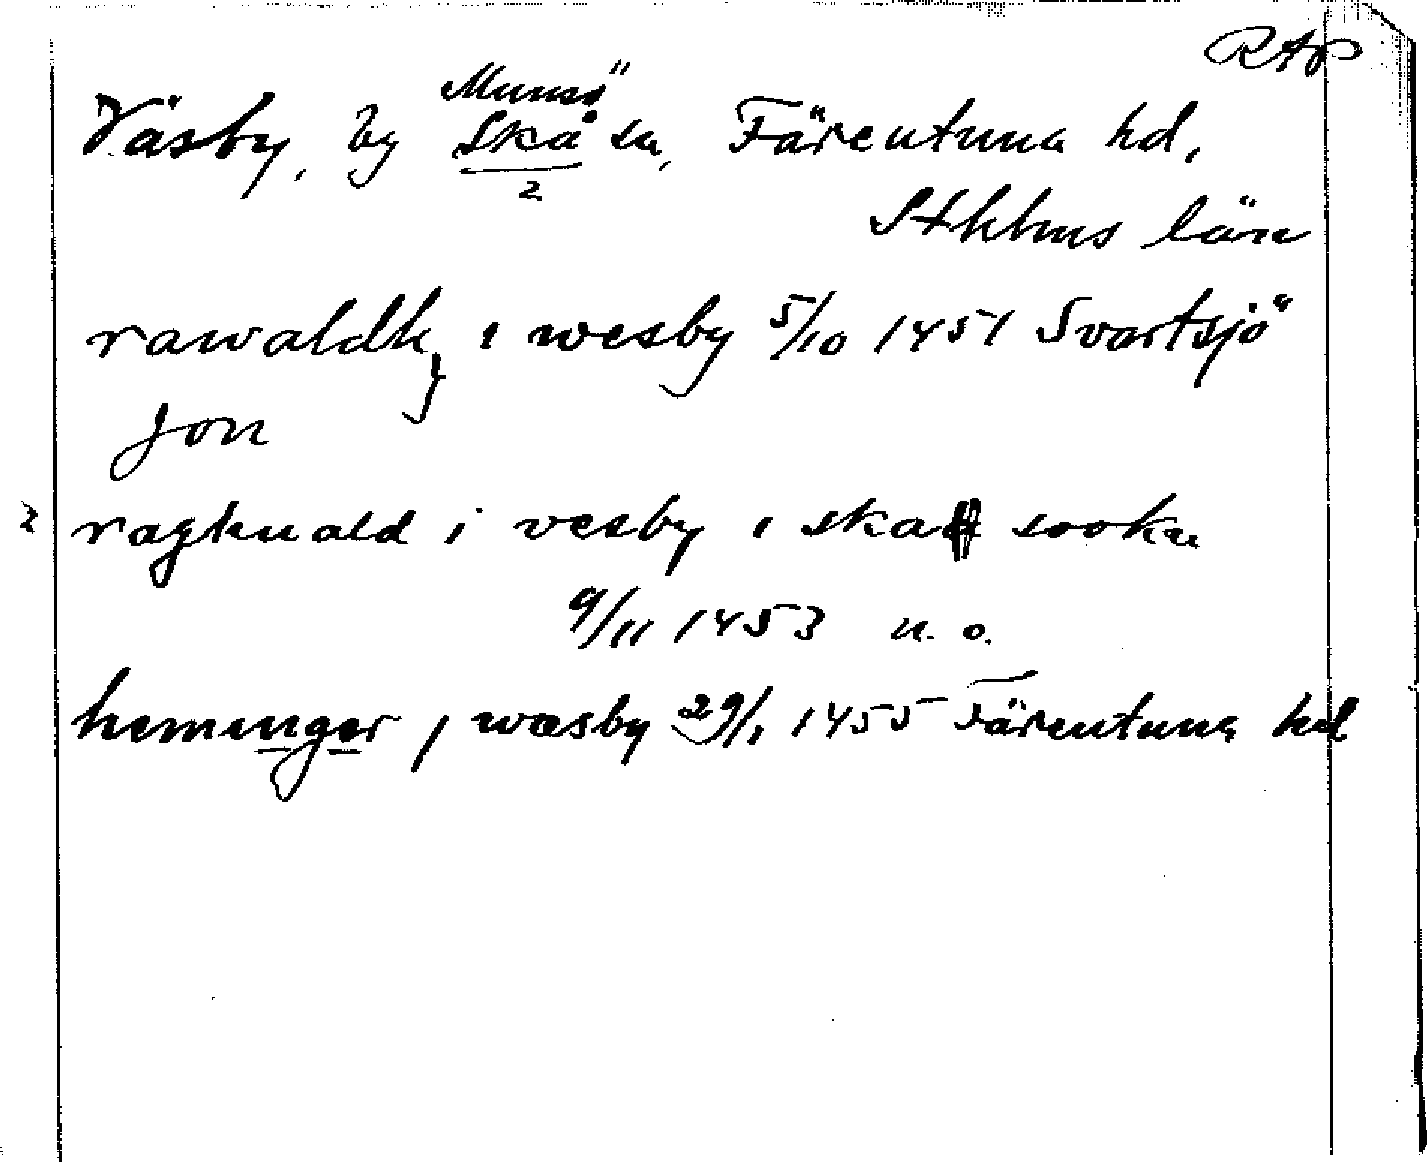 RAP
Munsö
Väsby, by Skå sn, Färentuna hd,
2
Stkhms län
rawaldh } i wesby 5/10 1451 Svartsjö
Jon
2 raghuald i vesby i ska sookn
9/11 1453 u. o.
heminger j wæsby 29/1 1455 Färentuna hd